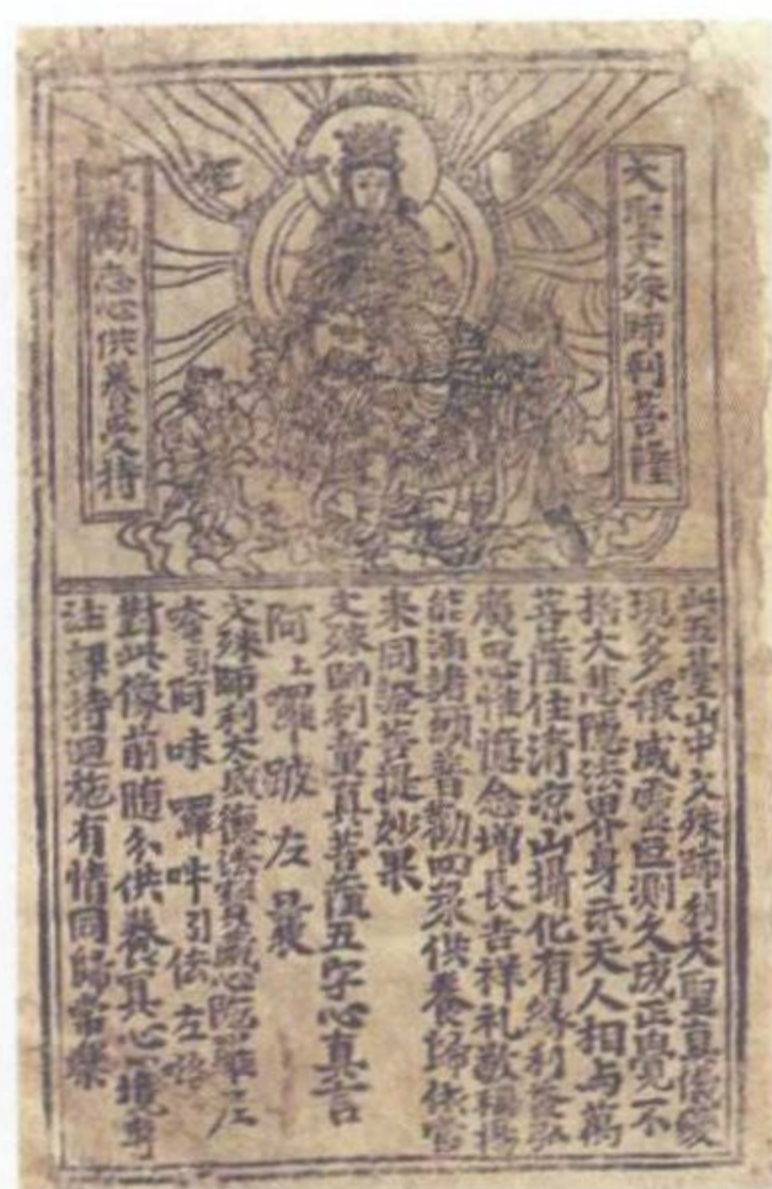 大聖文殊師利菩薩
勸志心供養受持
此五臺山中文殊師利大聖真儀變
現多般威靈叵測久成正覺不
捨大悲隱法界身示天人相与萬
菩薩住清涼山攝化有緣利益弘
廣思惟憶念增長吉祥礼敬稱揚
能滿諸願普勸四眾供養歸依當
來同證菩提妙果
文殊師利童真菩薩五字心真言
阿上羅跛左曩
文殊師利大威德法寶藏心陀羅尼
引阿味羅吽引佉左
對此像前隨分供養冥心一境專
注課持迴施有情同歸常樂